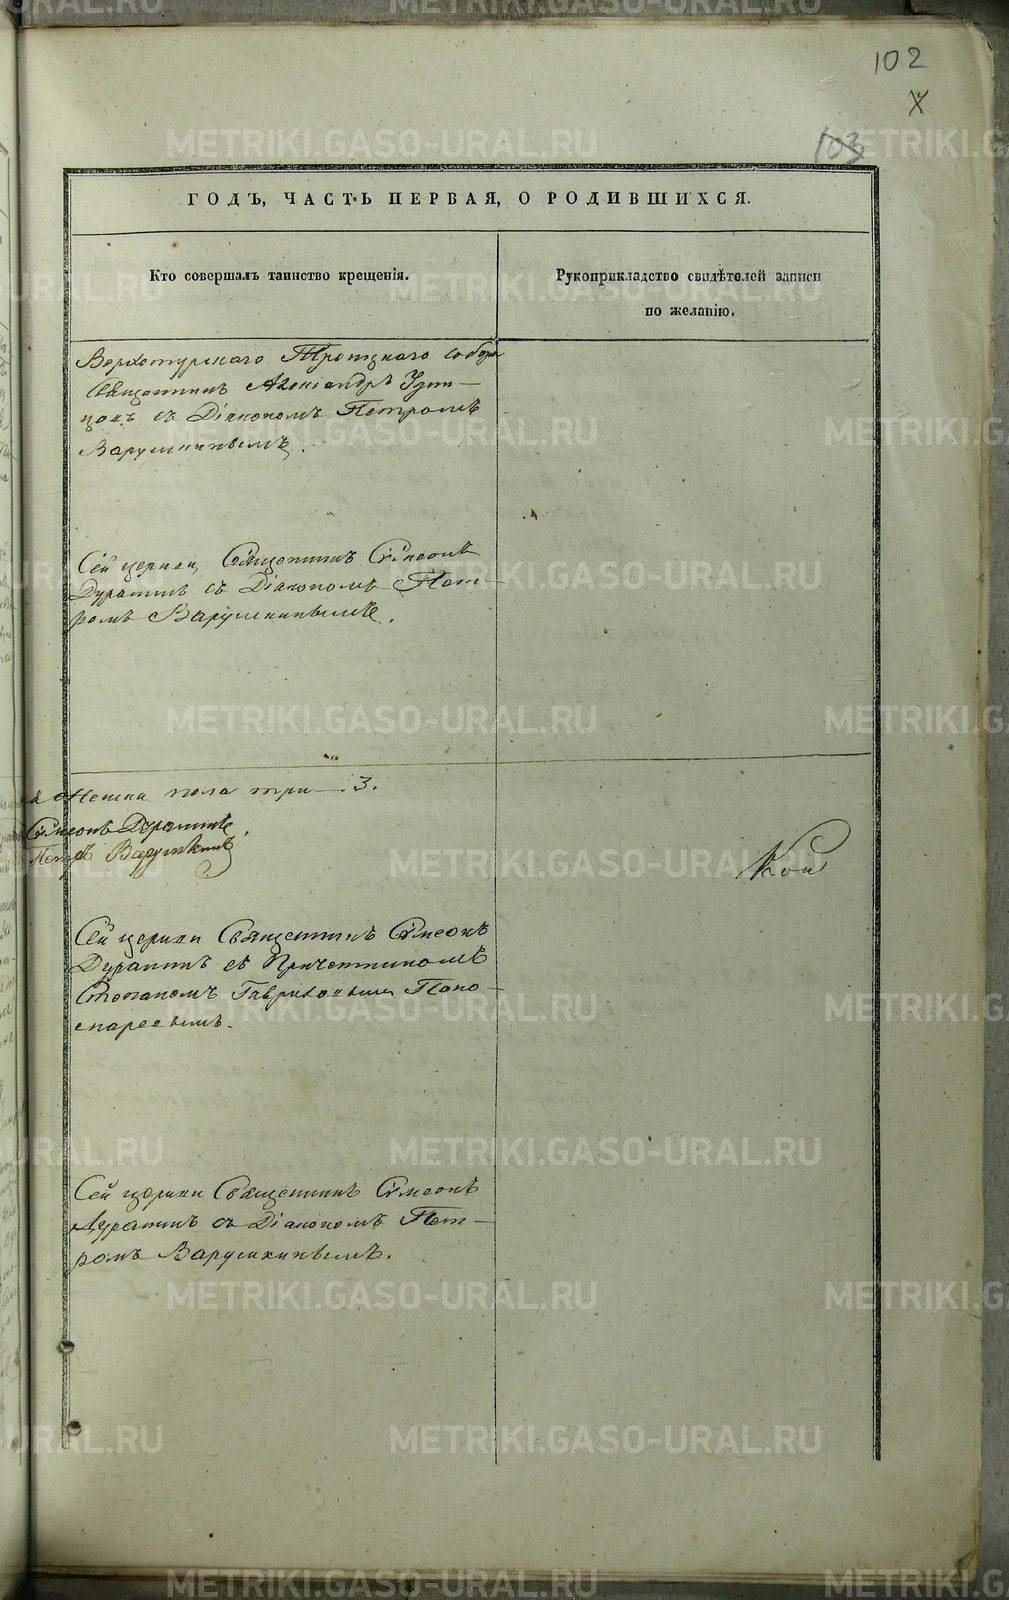 102
103
ГОДЪ, ЧАСТЬ ПЕРВАЯ, О РОДИВШИХСЯ.
Кто совершалъ таинство крещенія.
Рукоприкладство свидѣтелей записи
по желанію.
Верхотурскаго Троицкаго собора
Священникъ Александръ Удин-
цовъ съ Діакономъ Петромъ
Варушкинымъ.
Сей церкви Священникъ Сѵмеонъ
Дураминъ съ Діакономъ Пет-
ромъ Варушкинымъ.
Женска пола три — 3.
Сѵмеонъ Дураминъ.
Петръ Варушкинъ
Сей церкви Священникъ Сѵмеонъ
Дураминъ съ Причетникомъ
Степаномъ Гавриловымъ Поно-
маревымъ.
Сей церкви Священникъ Сѵмеонъ
Дураминъ съ Діакономъ Пет-
ромъ Варушкинымъ.
METRIKI.GASO-URAL.RU